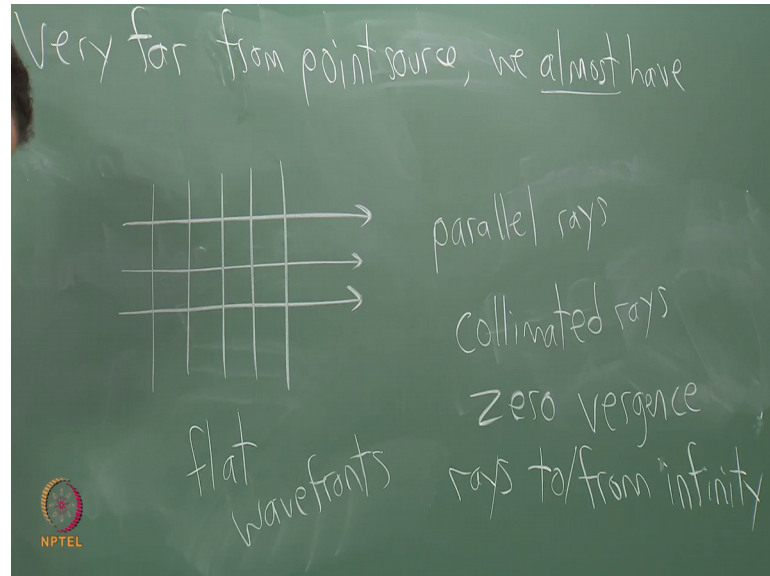 Very far from point source, we almost have
parallel rays
collimated rays
zero vergence
rays to/from infinity
flat
wavefronts
NPTEL